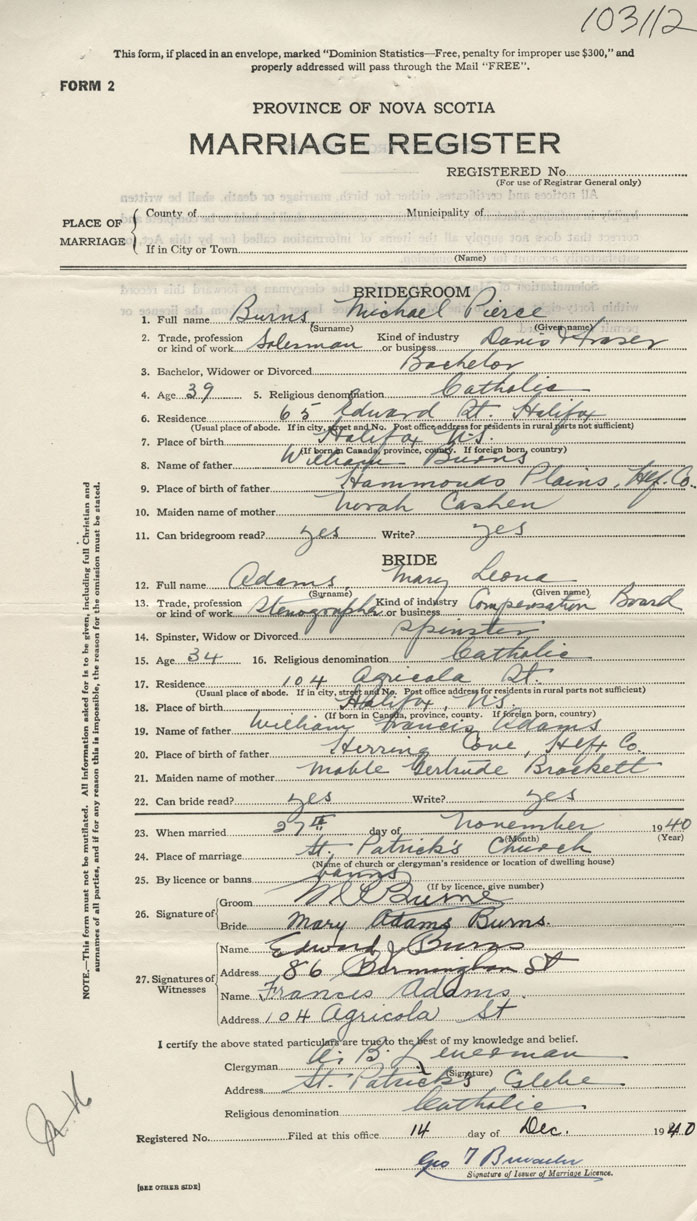 103112
This form, if placed in an envelope, marked "Dominion Statistics—Free, penalty for improper use $300," and
properly addressed will pass through the Mail "FREE".
FORM 2
PROVINCE OF NOVA SCOTIA
MARRIAGE REGISTER
REGISTERED No.
(For use of Registrar General only)
PLACE OF MARRIAGE
County of Municipality of
If in City or Town
(Name)
BRIDEGROOM
1. Full name Burns, Michael Pierce
(Surname) (Given name)
2. Trade, profession or kind of work Salesman Kind of industry or business Davis & Fraser
3. Bachelor, Widower or Divorced Bachelor
4. Age 39 5. Religious denomination Catholic
6. Residence 65 Edward St. Halifax
(Usual place of abode. If in city, street and No. Post office address for residents in rural parts not sufficient)
7. Place of birth Halifax N.S.
(If born in Canada, province, county. If foreign born, country)
8. Name of father William Burns
9. Place of birth of father Hammonds Plains, Hfx. Co.
10. Maiden name of mother Norah Cashen
11. Can bridegroom read? yes Write? yes
BRIDE
12. Full name Adams, Mary Leona
(Surname) (Given name)
13. Trade, profession or kind of work Stenographer Kind of industry or business Compensation Board
14. Spinster, Widow or Divorced Spinster
15. Age 34 16. Religious denomination Catholic
17. Residence 104 Agricola St.
(Usual place of abode. If in city, street and No. Post office address for residents in rural parts not sufficient)
18. Place of birth Halifax, N.S.
(If born in Canada, province, county. If foreign born, country)
19. Name of father William Francis Adams
20. Place of birth of father Herring Cove, Hfx Co.
21. Maiden name of mother Mable Gertrude Brackett
22. Can bride read? yes Write? yes
23. When married 27th day of November 1940
(Month) (Year)
24. Place of marriage St. Patrick's Church
(Name of church or clergyman's residence or location of dwelling house)
25. By licence or banns banns
(If by licence, give number)
26. Signature of
Groom M P Burns
Bride Mary Adams Burns.
27. Signatures of Witnesses
Name Edward J Burns
Address 86 Birmingham St
Name Francis Adams.
Address 104 Agricola St
I certify the above stated particulars are true to the best of my knowledge and belief.
Clergyman
(Signature)
Address St. Patrick's Glebe
Religious denomination Catholic
Registered No. Filed at this office 14 day of Dec. 1940
Geo T
Signature of Issuer of Marriage Licence.
[SEE OTHER SIDE]
NOTE.—This form must not be mutilated. All information asked for is to be given, including full Christian and
surnames of all parties, and if for any reason this is impossible, the reason for the omission must be stated.